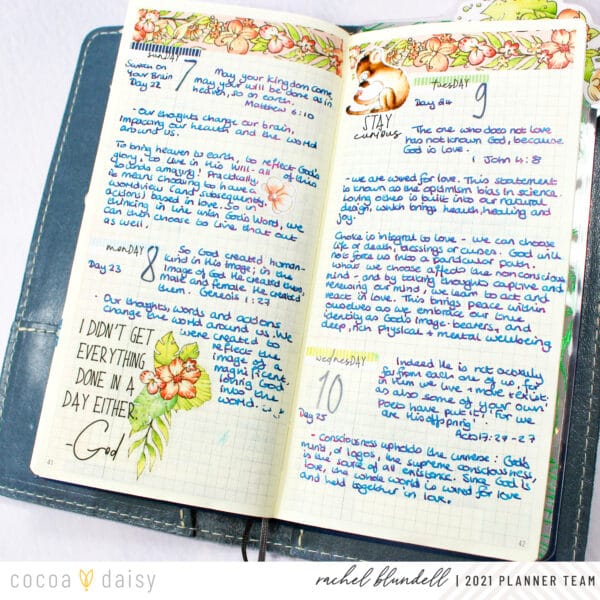 SUNDAY
7
Switch on
Your Brain
Day 22
May your Kingdom come,
may your will be done as in
heaven, so on earth.
Matthew 6:10
- Our thoughts change our brain,
impacting our health and the world
around us.
To bring heaven to earth, to reflect God's
glory, to live in this will - all of this
sounds amazing! Practically,
it means choosing to have a
worldview (and subsequently,
actions) based in love. So in
thinking in line with God's Word, we
can then choose to live that out
as well.
MONDAY
8
Day 23
So God created human-
kind in his image; in the
image of God he created them,
male and female he created
them. Genesis 1:27
- Our thoughts, words and actions
change the world around us. We
were created to
reflect the
image of a
magnificent,
loving God
into the
world.
I DIDN'T GET
EVERYTHING
DONE IN A
DAY EITHER.
-God
41
TUESDAY
9
Day 24
STAY
curious
The one who does not love
has not known God, because
God is love.
1 John 4:8
- we are wired for love. This statement
is known as the optimism bias in science.
Loving others is built into our natural
design, which brings health, healing and
joy.
Choice is integral to love - we can choose
life or death, blessings or curses. God will
not force us into a particular path.
What we choose affects the non conscious
mind - and by taking thoughts captive and
renewing our mind, we learn to act and
react in love. This brings peace within
ourselves as we embrace our true
identity as God's image-bearers, and
deep, rich physical + mental wellbeing
WEDNESDAY
10
Day 25
Indeed He is not actually
far from each one of us, for
in Him we live + move + exist:
as also some of your own
poets have put it: 'For we
are His offspring'
Acts 17:27-29
- Consciousness upholds the universe: God's
mind, or logos, the supreme consciousness,
is the source of all existence. Since God is
love, the whole world is wired for love
and held together in love.
42
cocoa daisy
rachel blundell | 2021 PLANNER TEAM